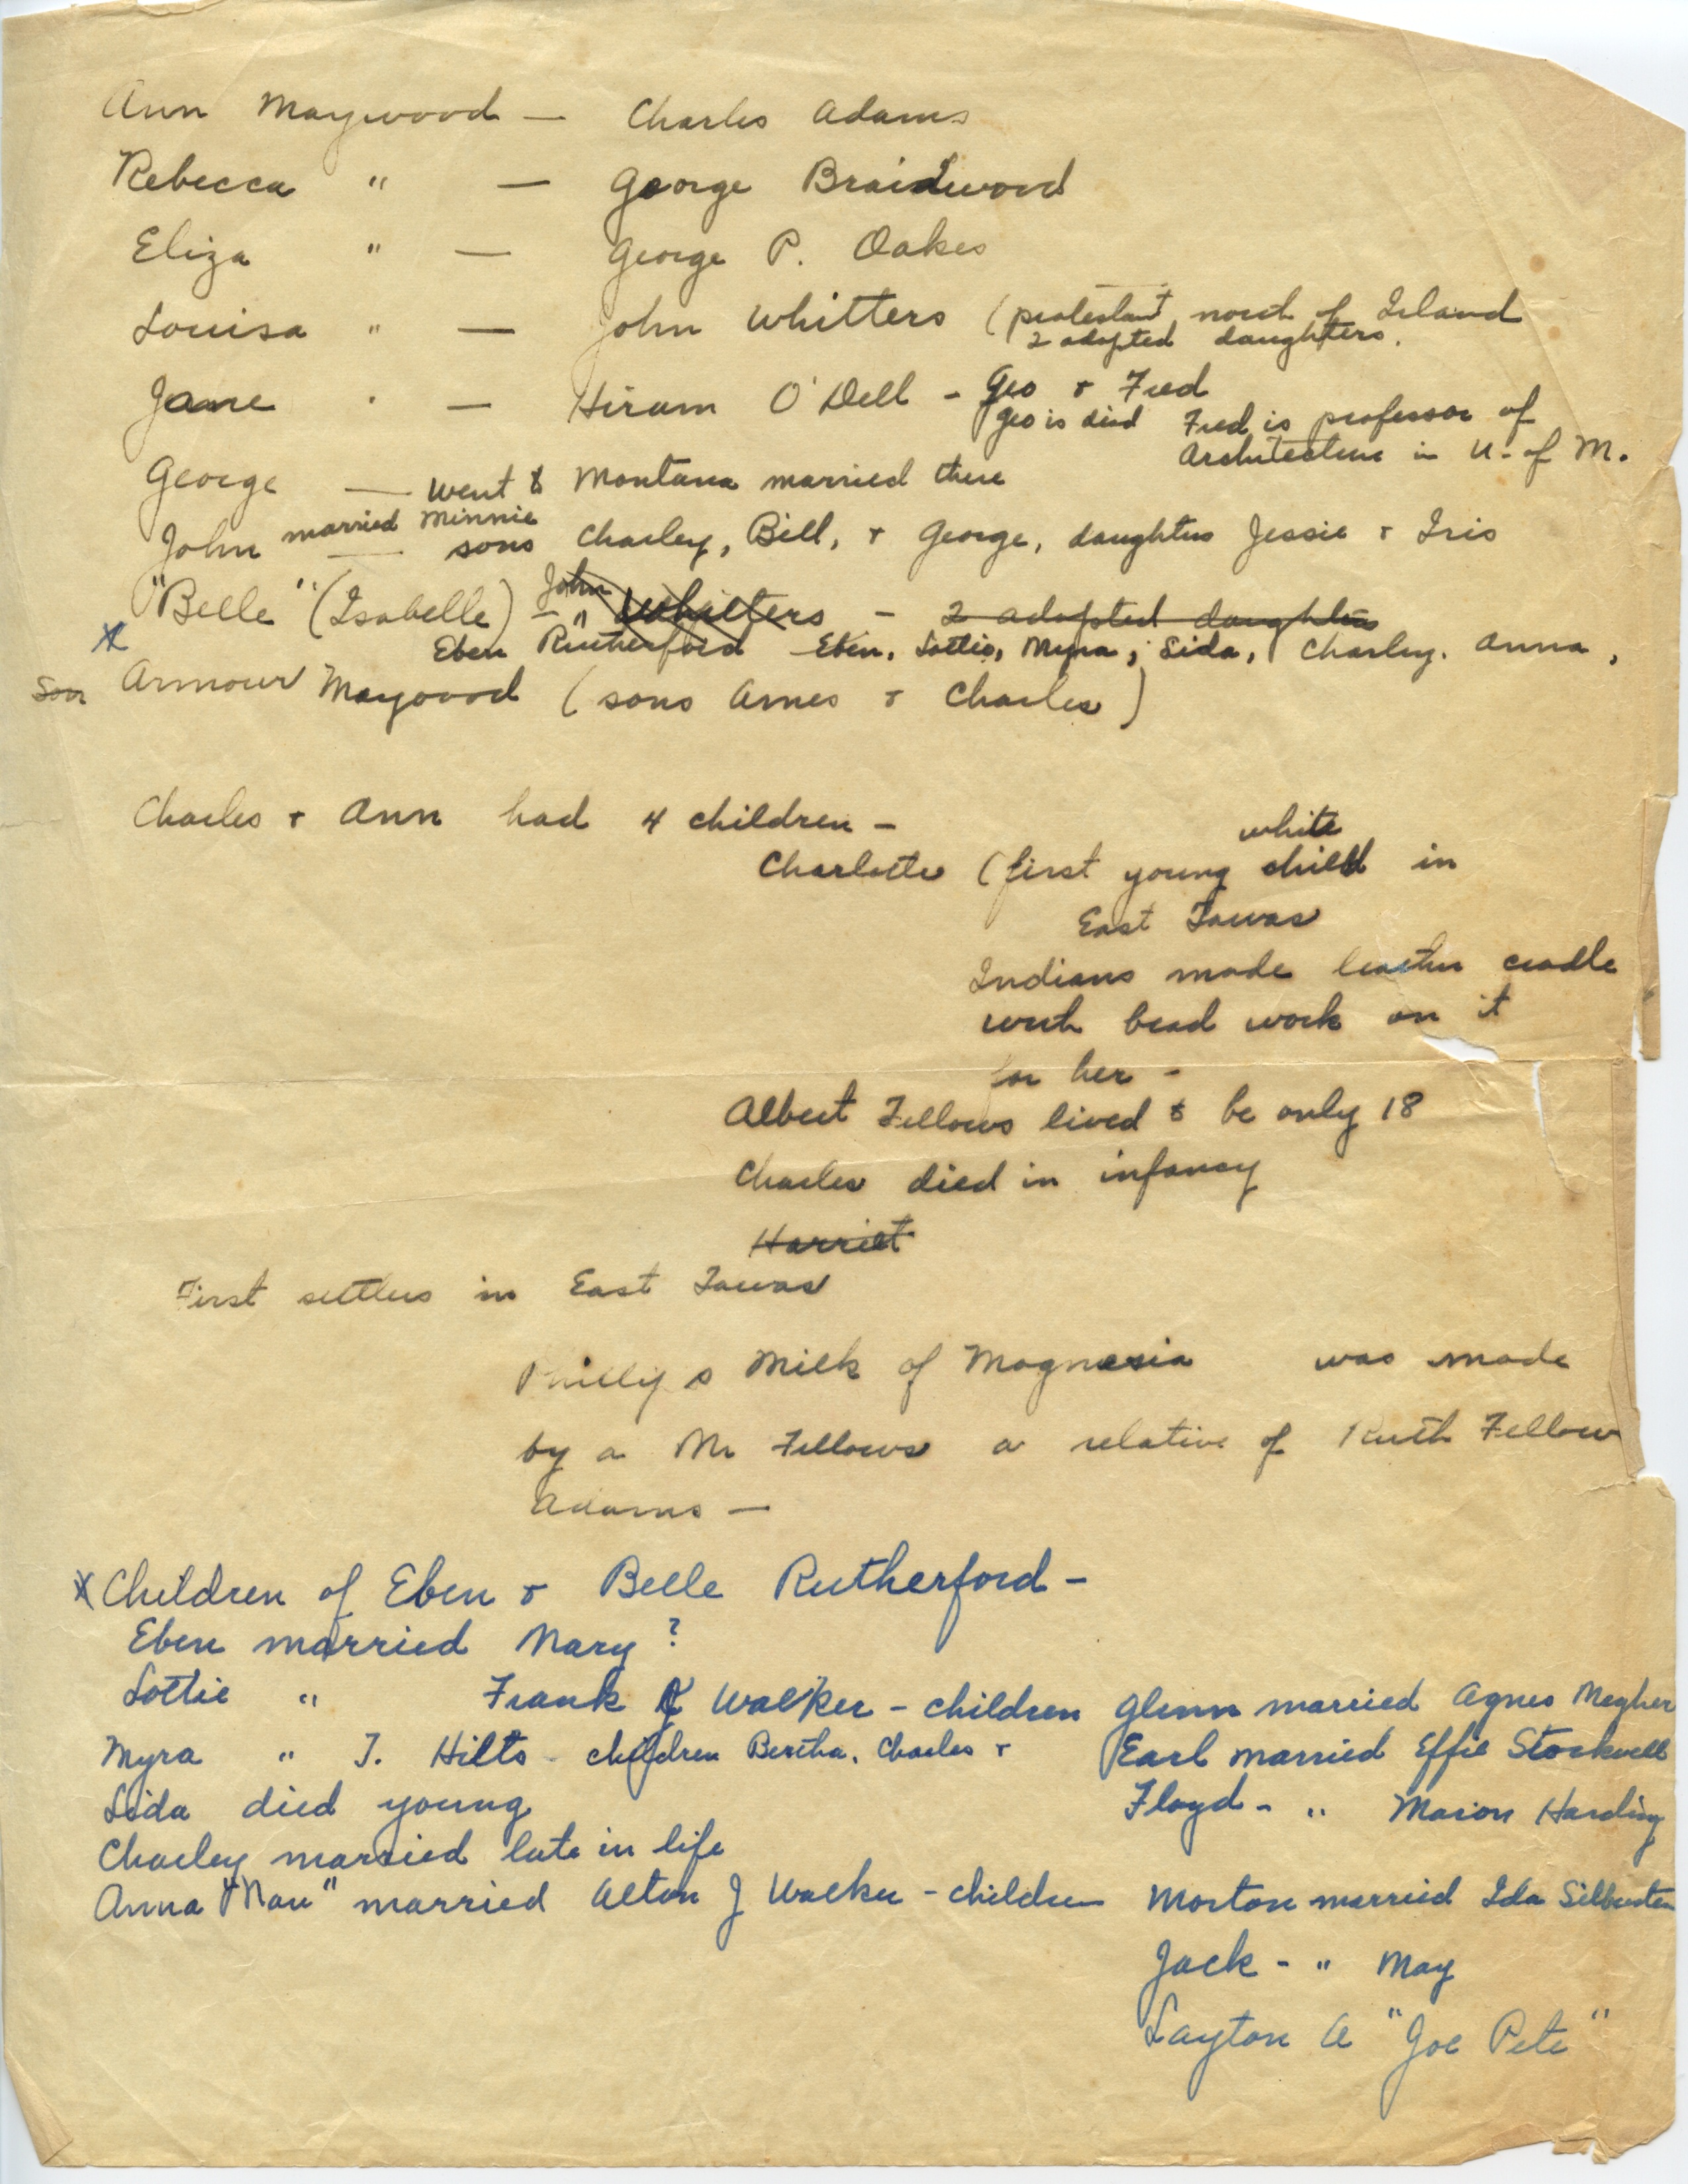 Ann Maywood — Charles Adams
Rebecca " — George Braidwood
Eliza " — George P. Oakes
Louisa " — John Whitters (protestant north of Ireland
2 adopted daughters.
Jane " — Hiram O'Dell - Geo & Fred
Geo is died Fred is professor of
Architecture in U. of M.
George — went to Montana married there
married Minnie
John — sons Charley, Bill, & George, daughters Jessie & Iris
John
"Belle" (Isabelle) - " Whitters - 2 adopted daughters
Eben Rutherford Eben, Lottie, Myra, Lida, Charley, Anna,
Son Armour Maywood (sons Ames & Charles)
Charles & Ann had 4 children -
white
Charlotte (first young child in
East Tawas
Indians made leather cradle
with bead work on it
for her -
Albert Fellows lived to be only 18
Charles died in infancy
Harriet
First settlers in East Tawas
Phillips Milk of Magnesia was made
by a Mr Fellows a relative of Ruth Fellow
Adams —
x Children of Eben & Belle Rutherford -
Eben married Mary ?
Lottie " Frank Walker - children Glenn married Agnes Megher
Myra " T. Hilts - children Bertha, Charles & Earl married Effie Stockwell
Lida died young Floyd - " Marion Harding
Charley married late in life
Anna "Nan" married Alton J Walker - children Morton married Ida
Jack - " May
Layton A "Joe Pete"